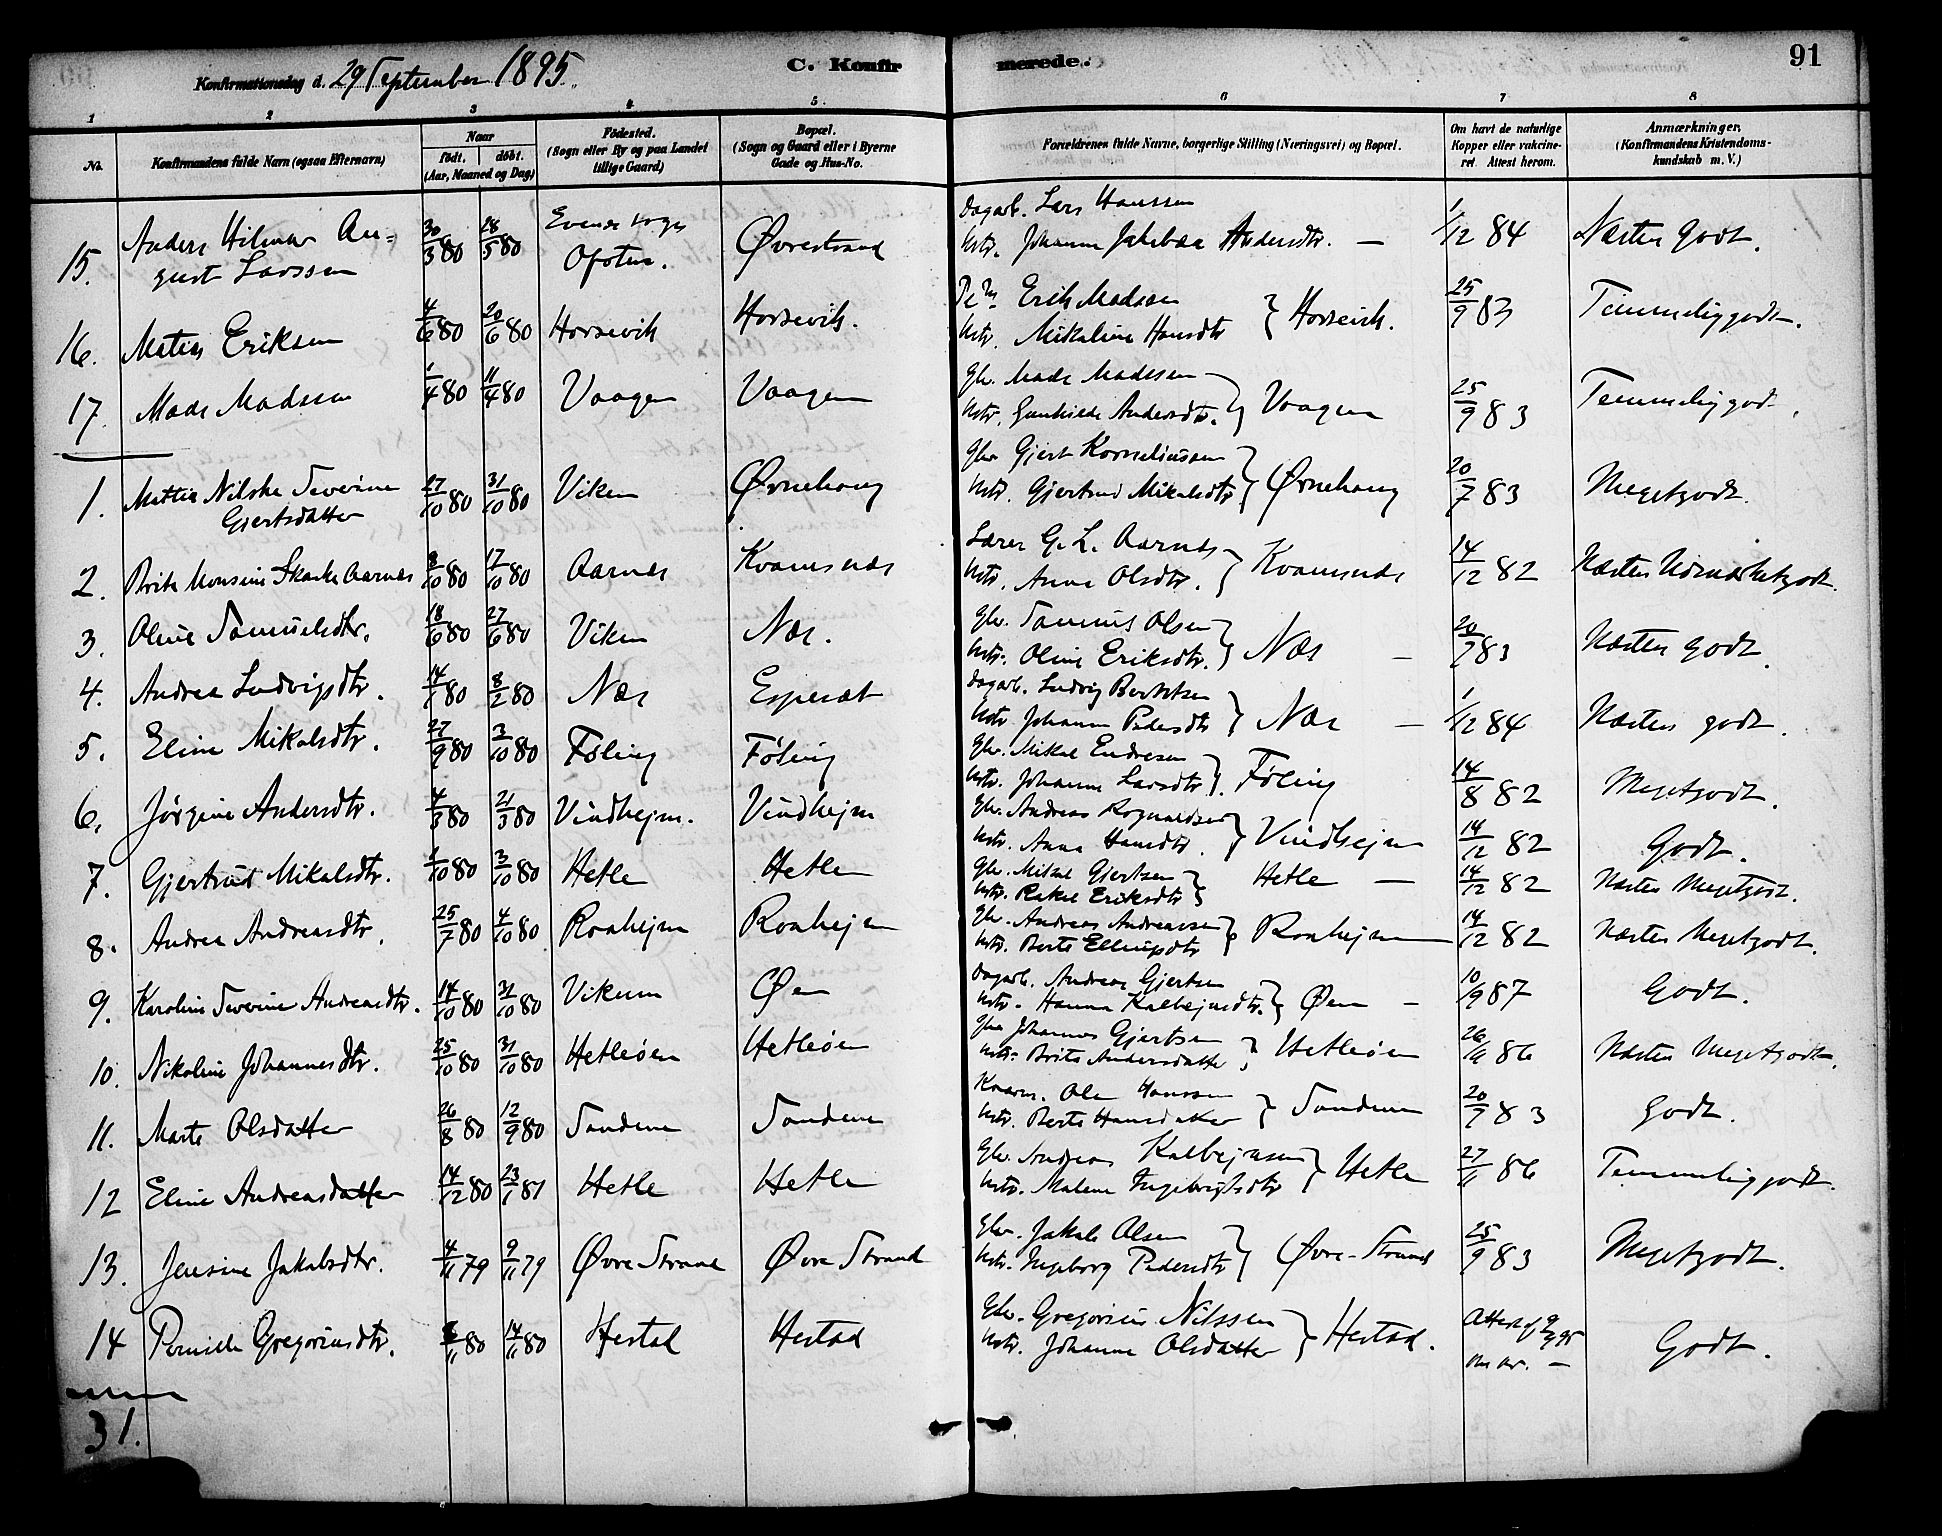 Konfirmationsdag d. 29 September 1895. C. Konfirmerede. 91
1 2 3 4 5. 6 7 8
No. Konfirmandens fulde Navn (ogsaa Efternavn) Naar født. døbt. (Aar, Maaned og Dag) Fødested. (Sogn eller By og paa Landet tillige Gaard) Bopæl. (Sogn og Gaard eller i Byerne Gade og Hus-No. Forældrenes fulde Navne, borgerlige Stilling (Næringsvei) og Bopæl. Om havt de naturlige Kopper eller vakcineret. Attest herom. Anmærkninger. (Konfirmandens Kristendomskundskab m. V.)
15. Anders Hilmar August Larssen 30/3 80 28/5 80 Evenes sogn Ofoten. Øvrestrand Dagarb. Lars Hanssen Hstr. Johanna Jakobæa Andersdtr. — 1/12 84 Næsten godt.
16. Matias Eriksen 4/6 80 20/6 80 Horsevik Horsevik. Erik Madsen Hstr. Mikaline Hansdtr } Horsevik. 25/9 83 Temmelig godt.
17. Mads Madssen 1/4 80 11/4 80 Vaagen Vaagen Gbr. Mads Madssen Hstr. Gunhilde Andersdtr. } Vaagen 25/9 83 Temmelig godt.
1. Mattea Nilska Severine Gjertsdatter 27/10 80 31/10 80 Viken Ørnehaug Gbr Gjert Korneliussen Hstr. Gjertrud Mikalsdtr } Ørnehaug 20/7 83 Megetgodt.
2. Brita Monsine Skarke Aarnes 8/10 80 17/10 80 Aarnes Kvamsnæs Lærer G. L. Aarnes Hstr. Anna Olsdtr. } Kvamsnæs 14/12 82 Næsten Udmærketgodt.
3. Oline Samuelsdtr. 18/6 80 27/6 80 Viken Næs. Gbr. Samuel Olsen Hstr. Oline Eriksdtr. } Næs — 20/7 83 Næsten godt.
4. Andrea Ludvigsdtr. 14/1 80 8/2 80 Næs Espesæt Dagarb. Ludvig Bertelsen Hstr Johanna Pedersdtr } Næs — 1/12 84 Næsten godt.
5. Eline Mikalsdtr. 27/9 80 3/10 80 Føling Føling Gbr. Mikal Endresen Hstr. Johanna Larsdtr } Føling 14/8 82 Megetgodt.
6. Jørgine Andersdtr. 4/3 80 21/3 80 Vindhejm. Vindhejm Gbr. Andreas Rognaldsen Hstr. Anna Hansdtr. } Vindhejm 14/12 82 Godt.
7. Gjertrud Mikalsdtr. 1/10 80 3/10 80 Hetle Hetle Gbr. Mikal Gjertsen Hstr. Rakel Eriksdtr } Hetle — 14/12 82 Næsten Megetgodt.
8. Andrea Andreasdtr. 25/7 80 4/10 80 Ronhejm Ronhejm Gbr. Andreas Andreassen Hstr. Berte Ellingsdtr } Ronhejm 14/12 82 Næsten Megetgodt.
9. Karoline Severine Andreasdtr. 14/10 80 31/10 80 Vikum Øen Dagarb. Andreas Gjertsen Hstr. Hanna Kolbejnsdtr. } Øen — 10/9 87 Godt.
10. Nikoline Johannesdtr. 25/10 80 31/10 80 Hetleøen Hetleøen Gbr Johannes Gjertsen Hstr. Brita Andersdatter } Hetleøen 86 Næsten Megetgodt.
11. Marta Olsdatter 26/8 80 12/9 80 Sandene Sandene Ole Hanssen Hstr. Berte Hansdatter } Sandene 20/7 83 Godt.
12 Eline Andreasdatter 14/12 80 23/1 81 Hetle Hetle Gbr. Andreas Kolbejnsen Hstr. Malene Ingebrigtsdtr } Hetle 27/11 86 Temmelig godt.
13. Jensine Jakobsdtr. 4/11 79 9/11 79 Øvre Strand Øvre Strand Gbr. Jakob Olsen Hstr. Ingeborg Pedersdtr } Øvre-Strand 25/9 83 Megetgodt.
14 Pernille Gregoriusdtr. 80 14/11 80 Hestad Hestad Gbr. Gregorius Nilssen Hstr. Johanna Olsdatter } Hestad. Attest af 95 Godt.
31.